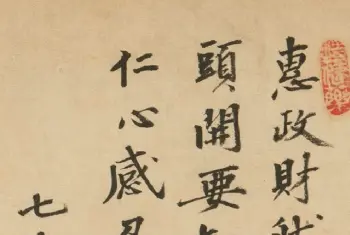 惠政財
頭開要
仁心感
七